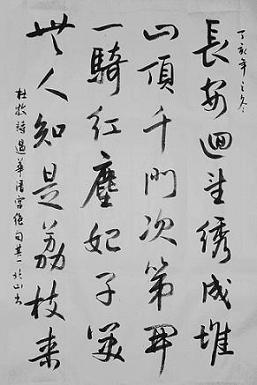 丁亥年之冬
長安迴望綉成堆
山頂千門次第開
一騎紅塵妃子笑
無人知是荔枝来
杜牧詩過華清宮絕句其一